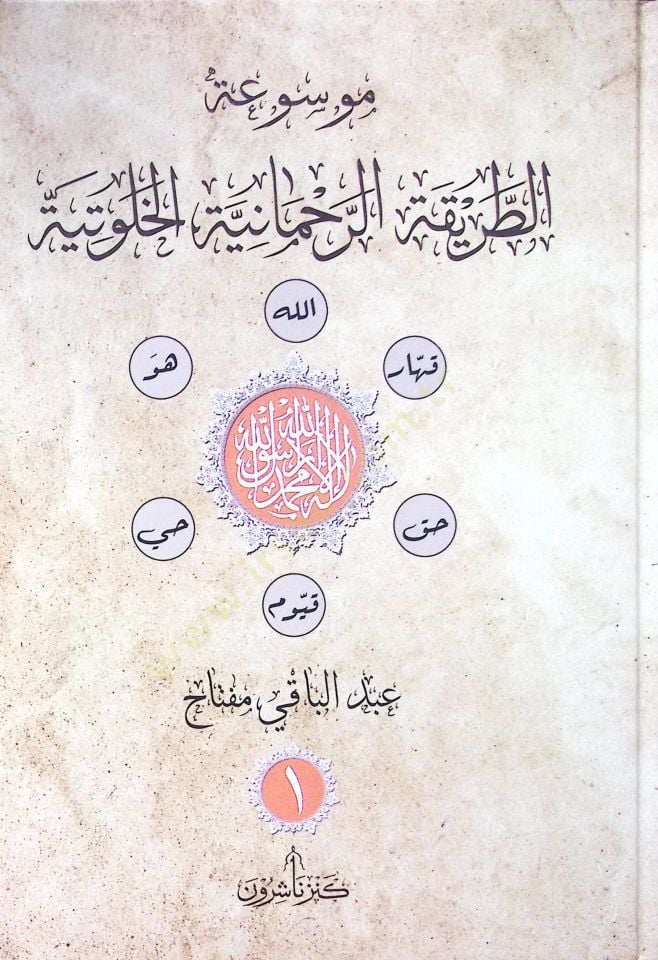 موسوعة
الطَّرِيْقَة الرَّحْمَانِيَّة الخَلْوَتِيَّة
الله
قهّار
هوَ
لا إله إلا الله محمد رسول الله
حق
حي
قيّوم
عبد الباقي مفتاح
١
كنز ناشرون